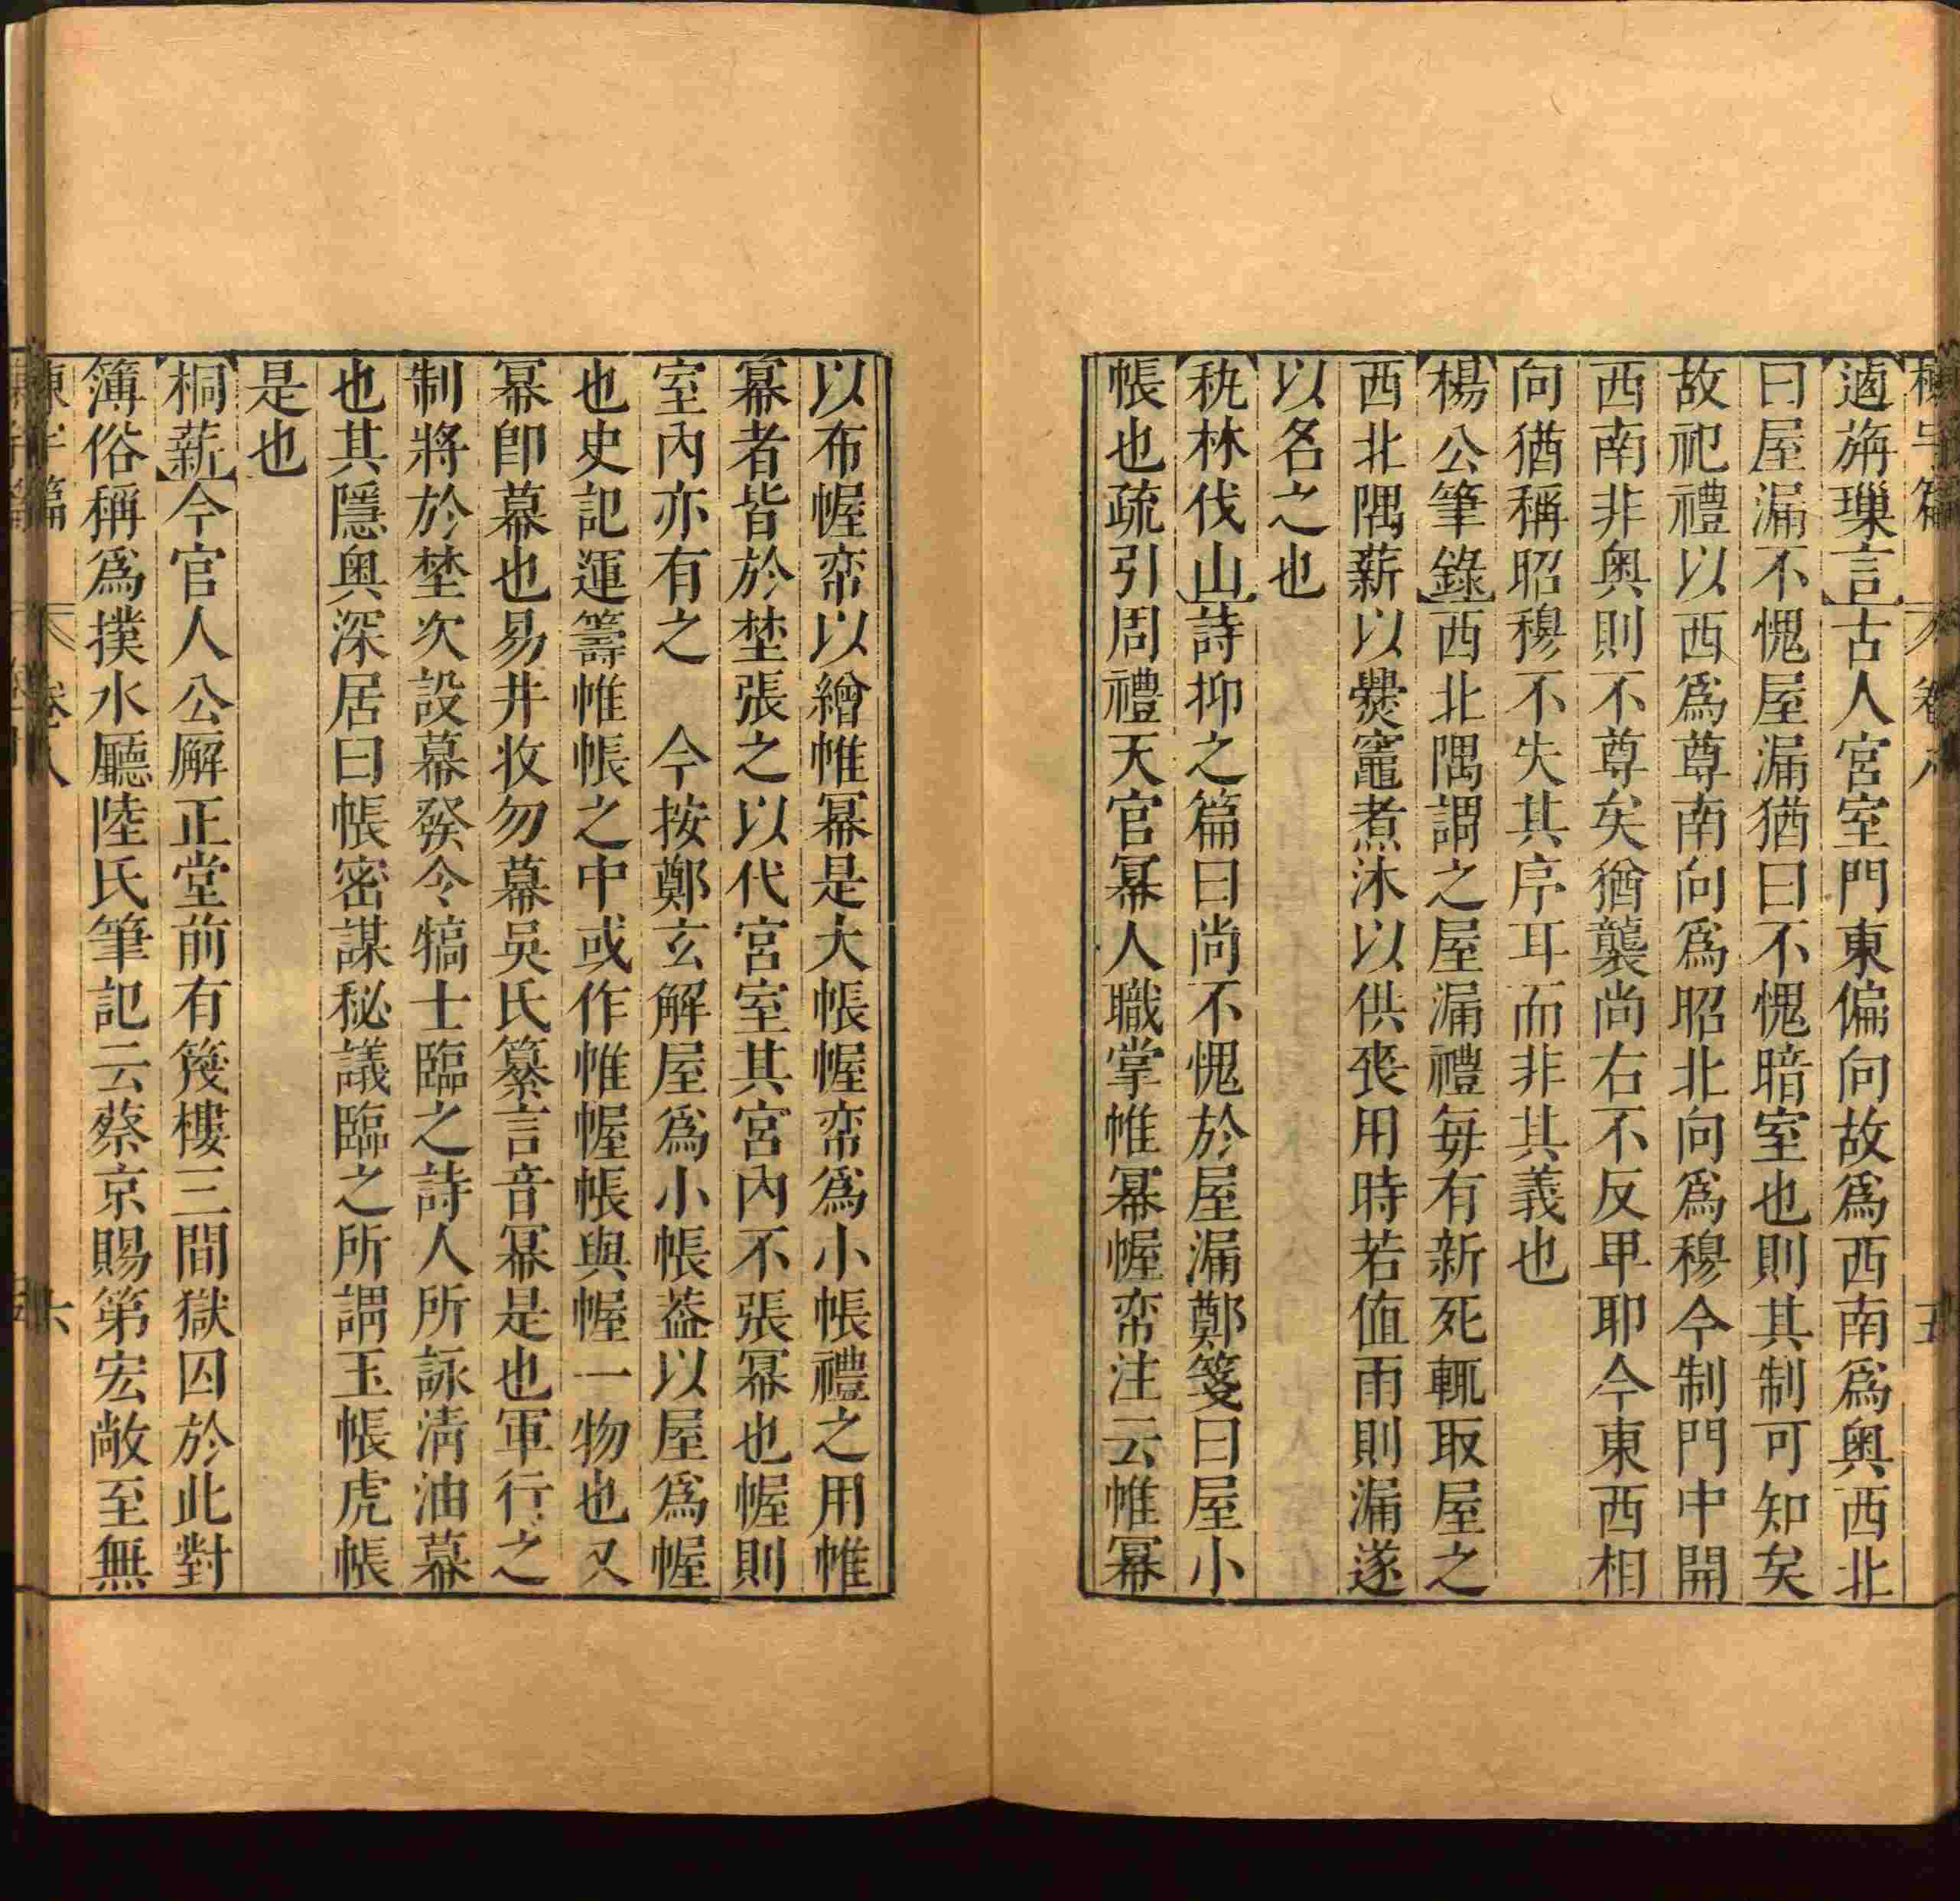 遁旃璅言古人宮室門東偏向故爲西南爲奧西北
曰屋漏不愧屋漏猶曰不愧暗室也則其制可知矣
故祀禮以西爲尊南向爲昭北向爲穆今制門中開
西南非奧則不尊矣猶襲尚右不反甲耶今東西相
向猶稱昭穆不失其序耳而非其義也
楊公筆錄西北隅謂之屋漏禮每有新死輒取屋之
西北隅薪以爨竈煮沐以供喪用時若值雨則漏遂
以名之也
秇林伐山詩抑之篇曰尚不愧於屋漏鄭箋曰屋小
帳也疏引周禮天官幂人職掌帷幂幄帟注云帷幂
以布幄帟以繒帷幂是大帳幄帟爲小帳禮之用帷
幂者皆於埜張之以代宮室其宮內不張幂也幄則
室內亦有之 今按鄭玄解屋爲小帳葢以屋爲幄
也史記運籌帷帳之中或作帷幄帳與幄一物也又
幂卽幕也易井收勿幕吳氏纂言音幂是也軍行之
制將於埜次設幕發令犒士臨之詩人所詠淸油幕
也其隱奧深居曰帳密謀秘議臨之所謂玉帳虎帳
是也
桐薪今官人公廨正堂前有籛樓三間獄囚於此對
簿俗稱爲撲水廳陸氏筆記云蔡京賜第宏敞至無
卷八 六